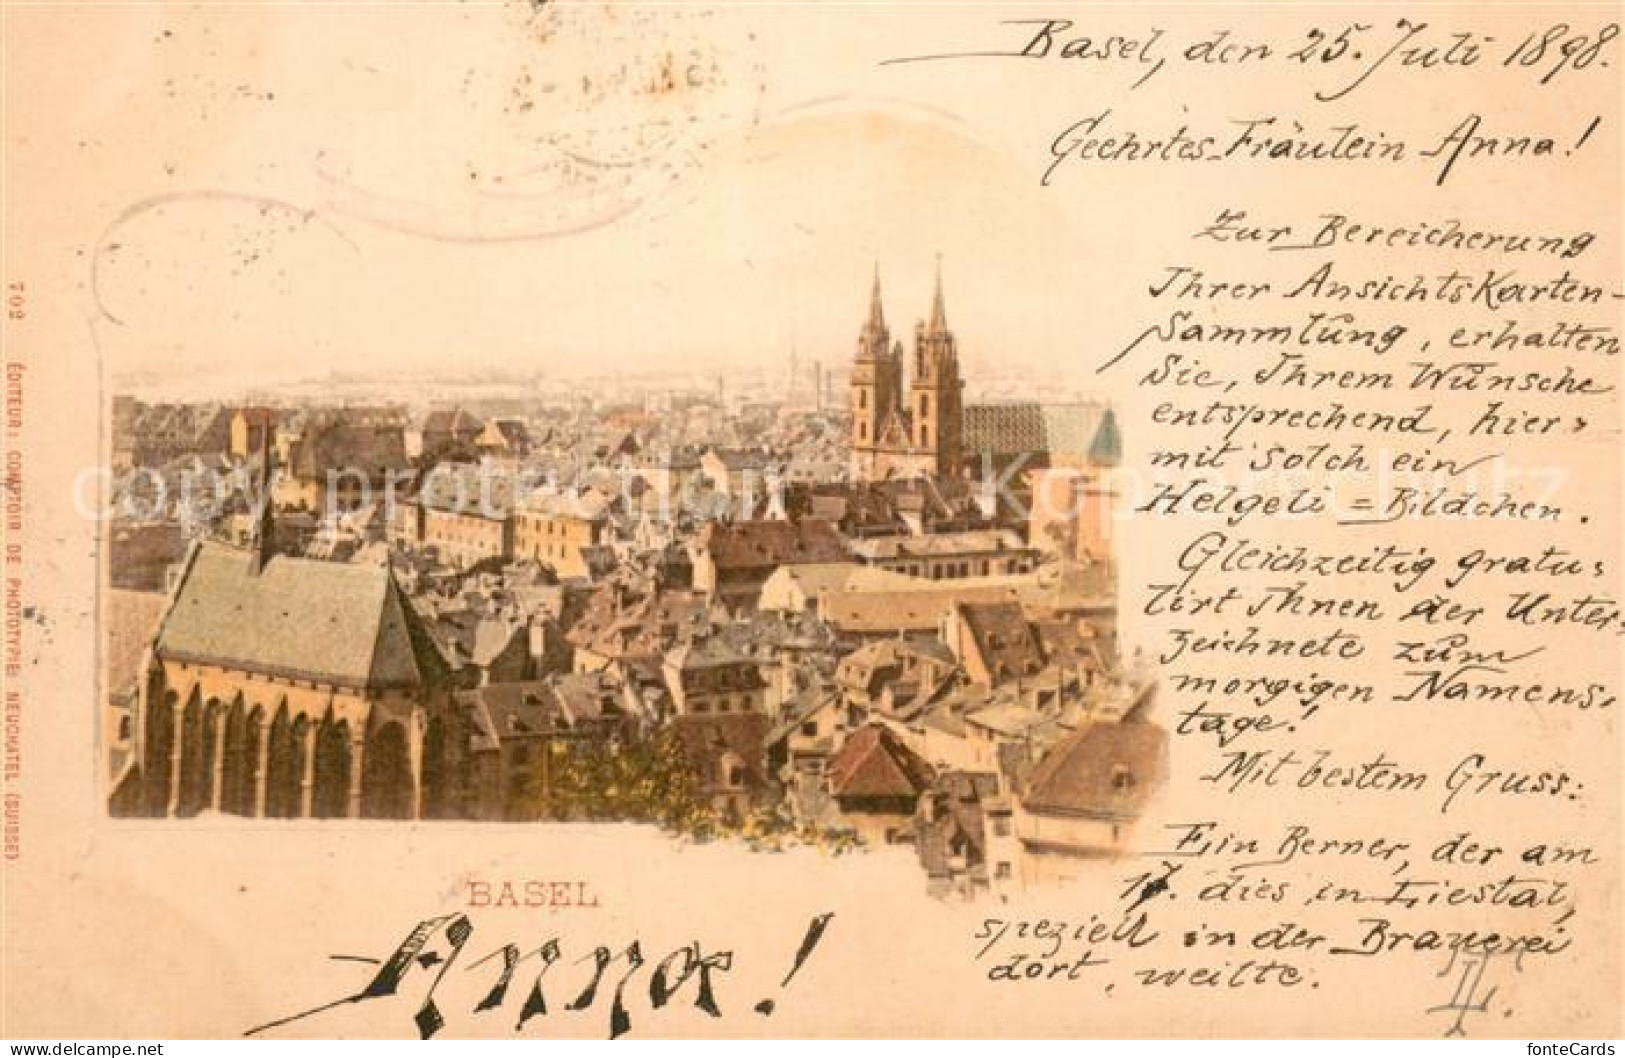 Basel, den 25. Juli 1898.
Geehrtes Fräulein Anna!
Zur Bereicherung
Ihrer Ansichtskarten-
Sammlung, erhalten
Sie, Ihrem Wunsche
entsprechend, hier=
mit solch ein
Helgeli=Bildchen.
Gleichzeitig gratu=
lirt Ihnen der Unter=
zeichnete zum
morgigen Namens=
tage!
Mit bestem Gruss:
Ein Berner, der am
17. dies in Liestal,
speziell in der Brauerei
dort, weilte.
702 ÉDITEUR: COMPTOIR DE PHOTOTYPIE, NEUCHATEL (SUISSE)
copy protection Kopierschutz
BASEL
Anna!
www.delcampe.net
fonteCards